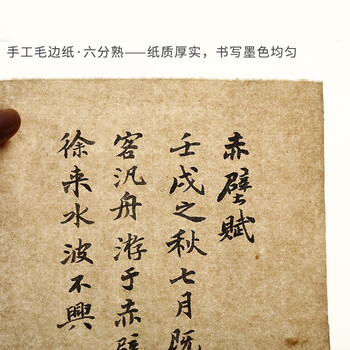 手工毛边纸·六分熟——纸质厚实，书写墨色均匀
赤壁賦
壬戌之秋七月既
客汎舟游于赤壁
徐来水波不興